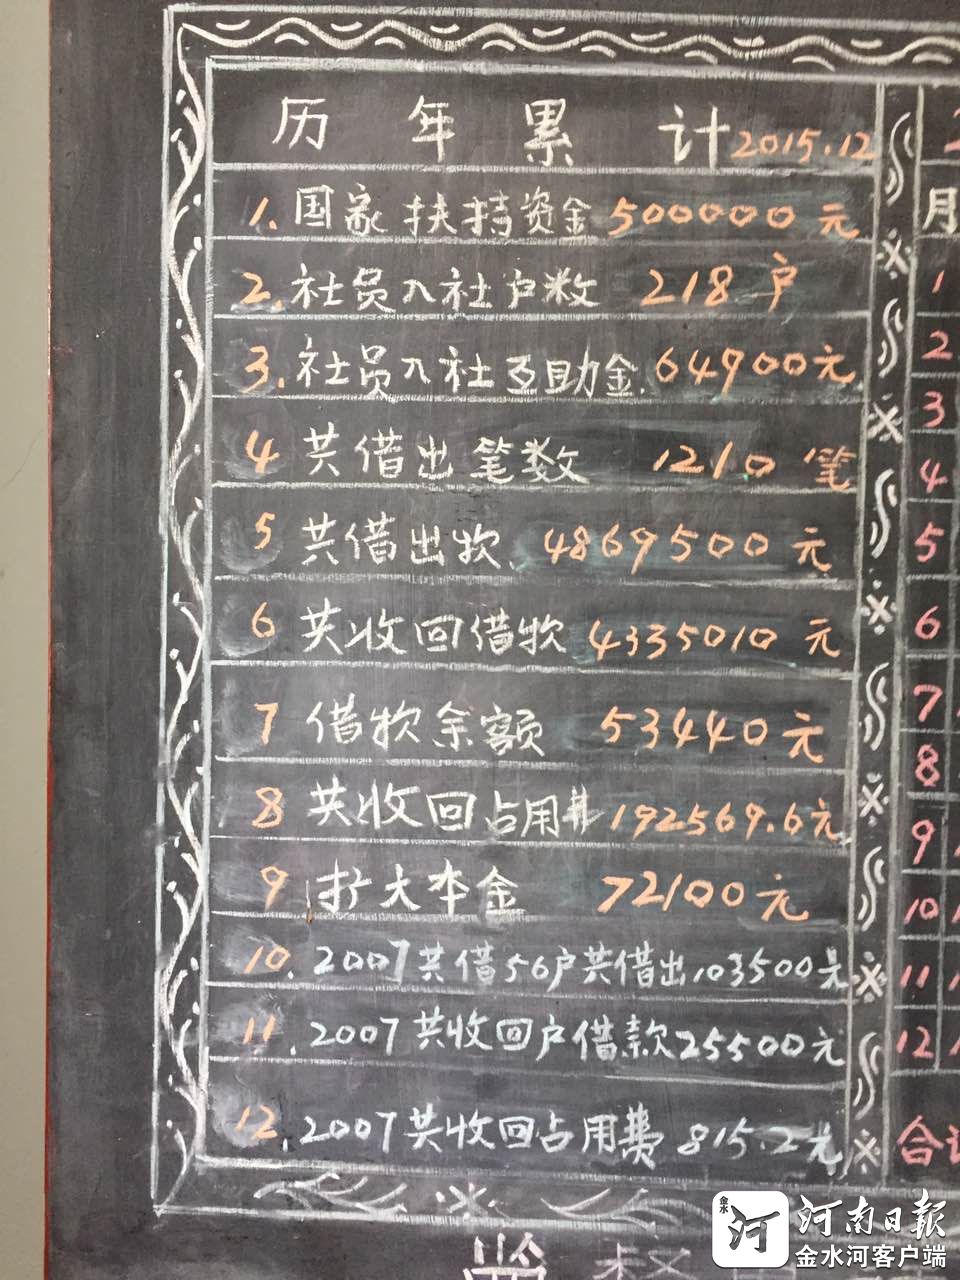 历年累计2015.12
1.国家扶持资金500000元
2.社员入社户数 218户
3.社员入社互助金.64900元
4 共借出笔数 1210笔
5 共借出款.4869500元
6 共收回借款4335010元
7 借款余额 53440元
8 共收回占用费192569.6元
9 扩大本金 72100元
10.2007共借56户共借出103500元
11.2007共收回户借款25500元
12.2007共收回占用费815.2元
月
1
2
3
4
5
6
7
8
9
10
11
12
合计
金水
河
河南日报
金水河客户端